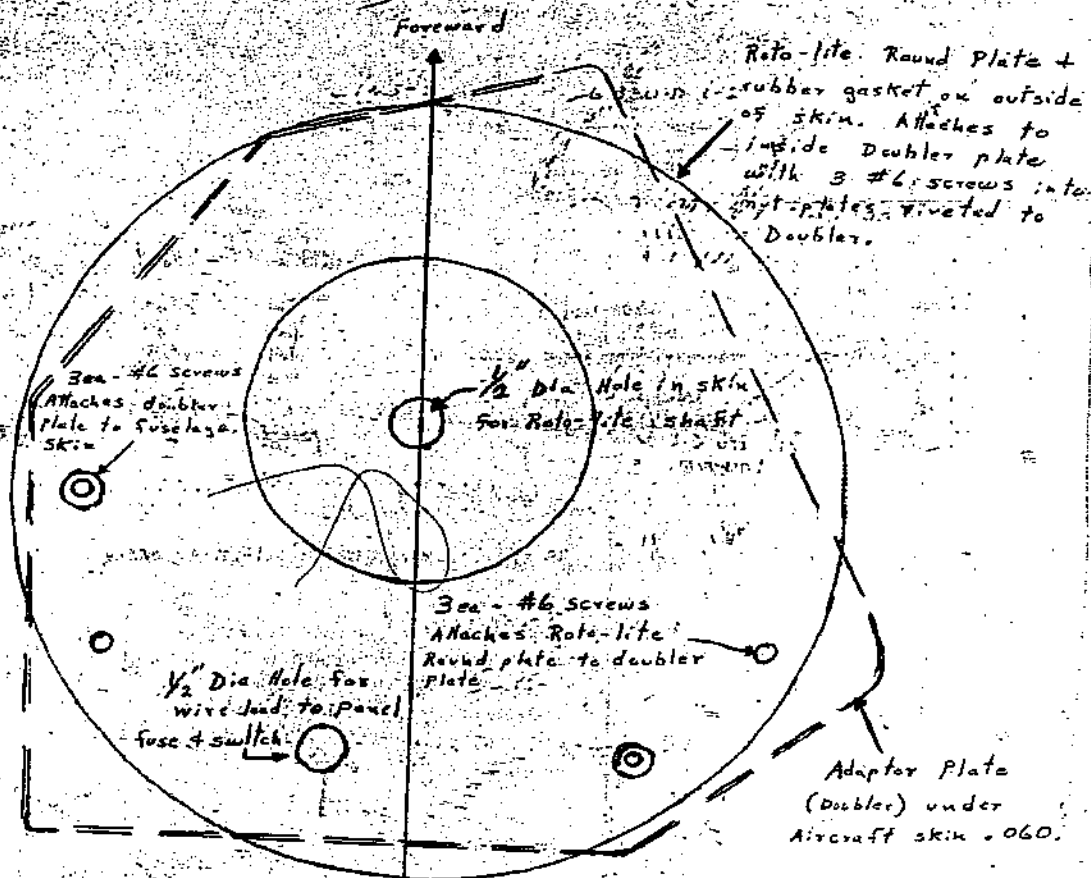 Foreward
Roto-lite Round Plate +
rubber gasket on outside
of skin. Attaches to
inside Doubler plate
with 3 #6 screws into
nut-plates riveted to
Doubler.
3ea - #6 screws
Attaches doubler
plate to fuselage
skin
1/2" Dia Hole in skin
for Roto-lite shaft
3ea - #6 screws
Attaches Roto-lite
Round plate to doubler
plate
1/2" Dia Hole for
wire lead to panel
fuse & switch
Adaptor Plate
(Doubler) under
Aircraft skin .060.